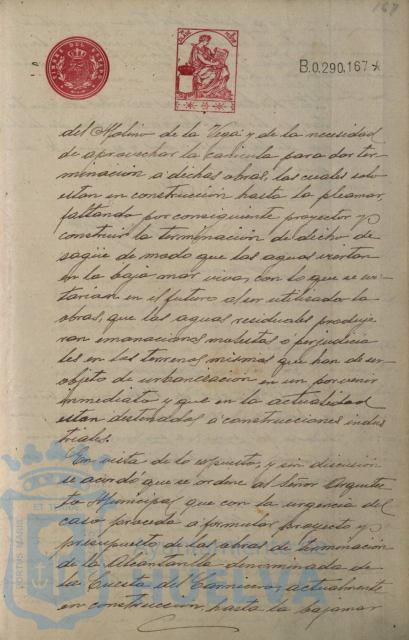 167
B.0.290.167 *
del Molino de la Vega y de la necesidad
de aprovechar la canicula para dar ter
minacion a dichas obras, las cuales solo
estan en construcción hasta la pleamar,
faltando por consiguiente proyectar y
construir la terminación de dicho de
sagüe de modo que las aguas viertan
en la baja mar viva, con lo que se evi
tarian en el futuro al ser utilizadas las
obras, que las aguas residuales produje
ran emanaciones molestas o perjudicia
les en los terrenos mismos que han de ser
objeto de urbanizacion en un porvenir
inmediato y que en la actualidad
estan destinados a construcciones indus
triales.
En vista de lo expuesto, y sin discusion
se acordó que se ordene al Señor Arquitec
to Municipal que con la urgencia del
caso proceda a formular proyecto y
presupuesto de las obras de terminación
de la Alcantarilla denominada de
la Cuesta del Carnicero, actualmente
en construccion, hasta la bajamar
PORTUS MARIS
HUELVA